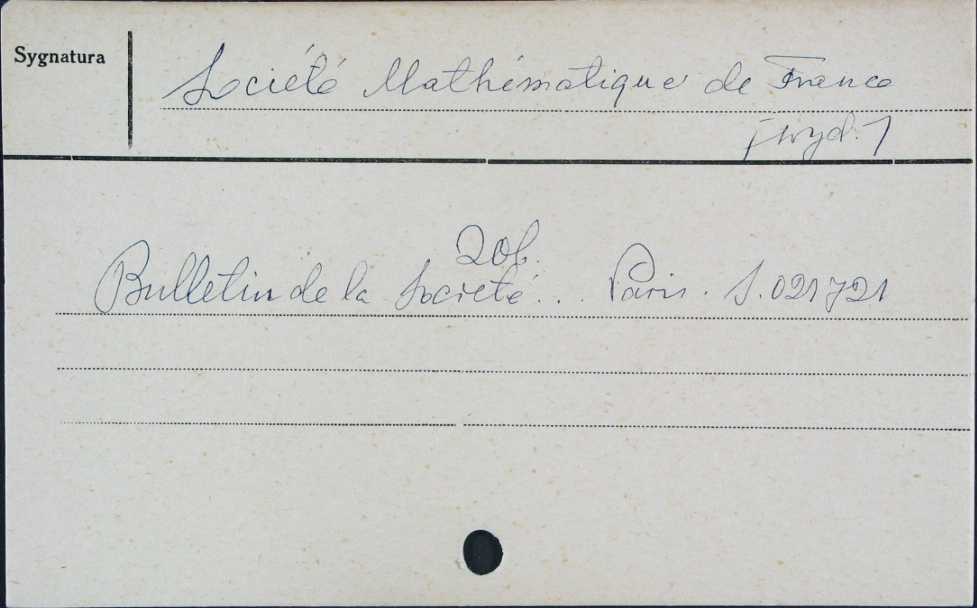 Sygnatura
Société Mathématique de France
[wyd.]
Zob.
Bulletin de la Société... Paris. S.021721